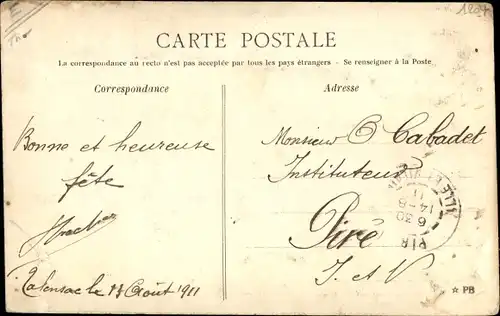 CARTE POSTALE
La correspondance au recto n'est pas acceptée par tous les pays étrangers - Se renseigner à la Poste
Correspondance
Adresse
Bonne et heureuse
fête
Talensac le 13 Août 1911
Monsieur O Cabadet
Instituteur
Piré
I. et V
ILLE-ET-VILAINE
6 30
14-8
11
PIRÉ
☆ PB